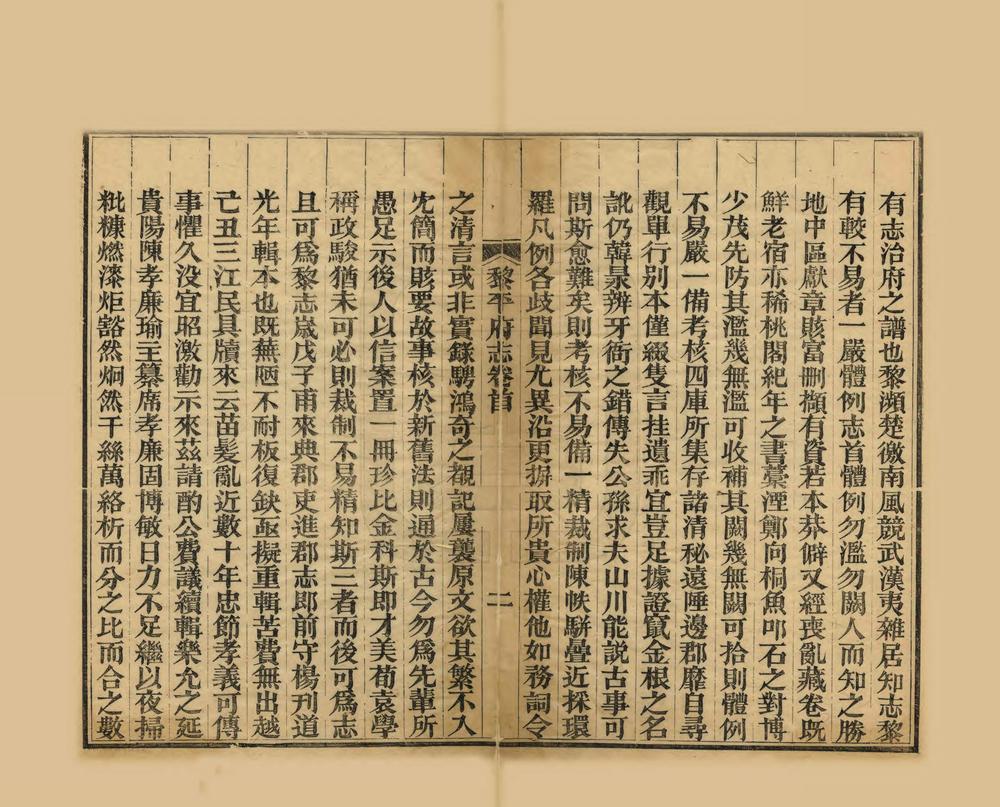 有志治府之譜也黎瀕楚徼南風競武漢夷雜居知志黎
有較不易者一嚴體例志首體例勿濫勿闕人而知之勝
地中區獻章賅富刪擷有資若本莽僻又經喪亂藏卷既
鮮老宿亦稀桃閣紀年之書藁湮鄭向桐魚叩石之對博
少茂先防其濫幾無濫可收補其闕幾無闕可拾則體例
不易嚴一備考核四庫所集存諸清秘遠陲邊郡靡自尋
觀單行别本僅綴隻言挂遺乖宜豈足據證竄金根之名
訛仍韓泉辨牙衙之錯傳失公孫求夫山川能説古事可
問斯愈難矣則考核不易備一精裁制陳帙駢疊近採環
羅凡例各歧聞見尤異沿更摒取所貴心權他如務詞令
黎平府志卷首
二
之清言或非實錄騁鴻奇之覩記屢襲原文欲其繁不入
宂簡而賅要故事核於新舊法則通於古今勿為先輩所
愚足示後人以信案置一冊珍比金科斯即才美荀袁學
稱政駿猶未可必則裁制不易精知斯三者而後可為志
且可為黎志歲戊子甫來典郡吏進郡志即前守楊刋道
光年輯本也既蕪陋不耐板復缺亟擬重輯苦費無出越
己丑三江民具牘來云苗髮亂近數十年忠節孝義可傳
事懼久没宜昭激勸示來茲請酌公費議續輯樂允之延
貴陽陳孝廉瑜主纂席孝廉固博敏日力不足繼以夜掃
粃糠燃漆炬豁然炯然千絲萬絡析而分之比而合之數